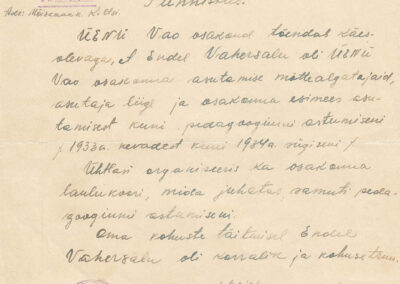 Tunnistus.
Aadr: Mõisamaa k.
ÜENÜ Vao osakond tõendab käes-
olevaga, et Endel Vahersalu oli ÜENÜ
Vao osakonna asutamise mõttealgatajaid,
asutaja liige ja osakonna esimees asu-
tamisest kuni pedagoogiumi astumiseni
/ 1933a. kevadest kuni 1934a. sügiseni /
Ühtlasi organiseeris ka osakonna
laulukoori, mida juhatas, samuti peda-
googiumi astumiseni.
Oma kohuste täitmisel Endel
Vahersalu oli korralik ja kohusetruu.